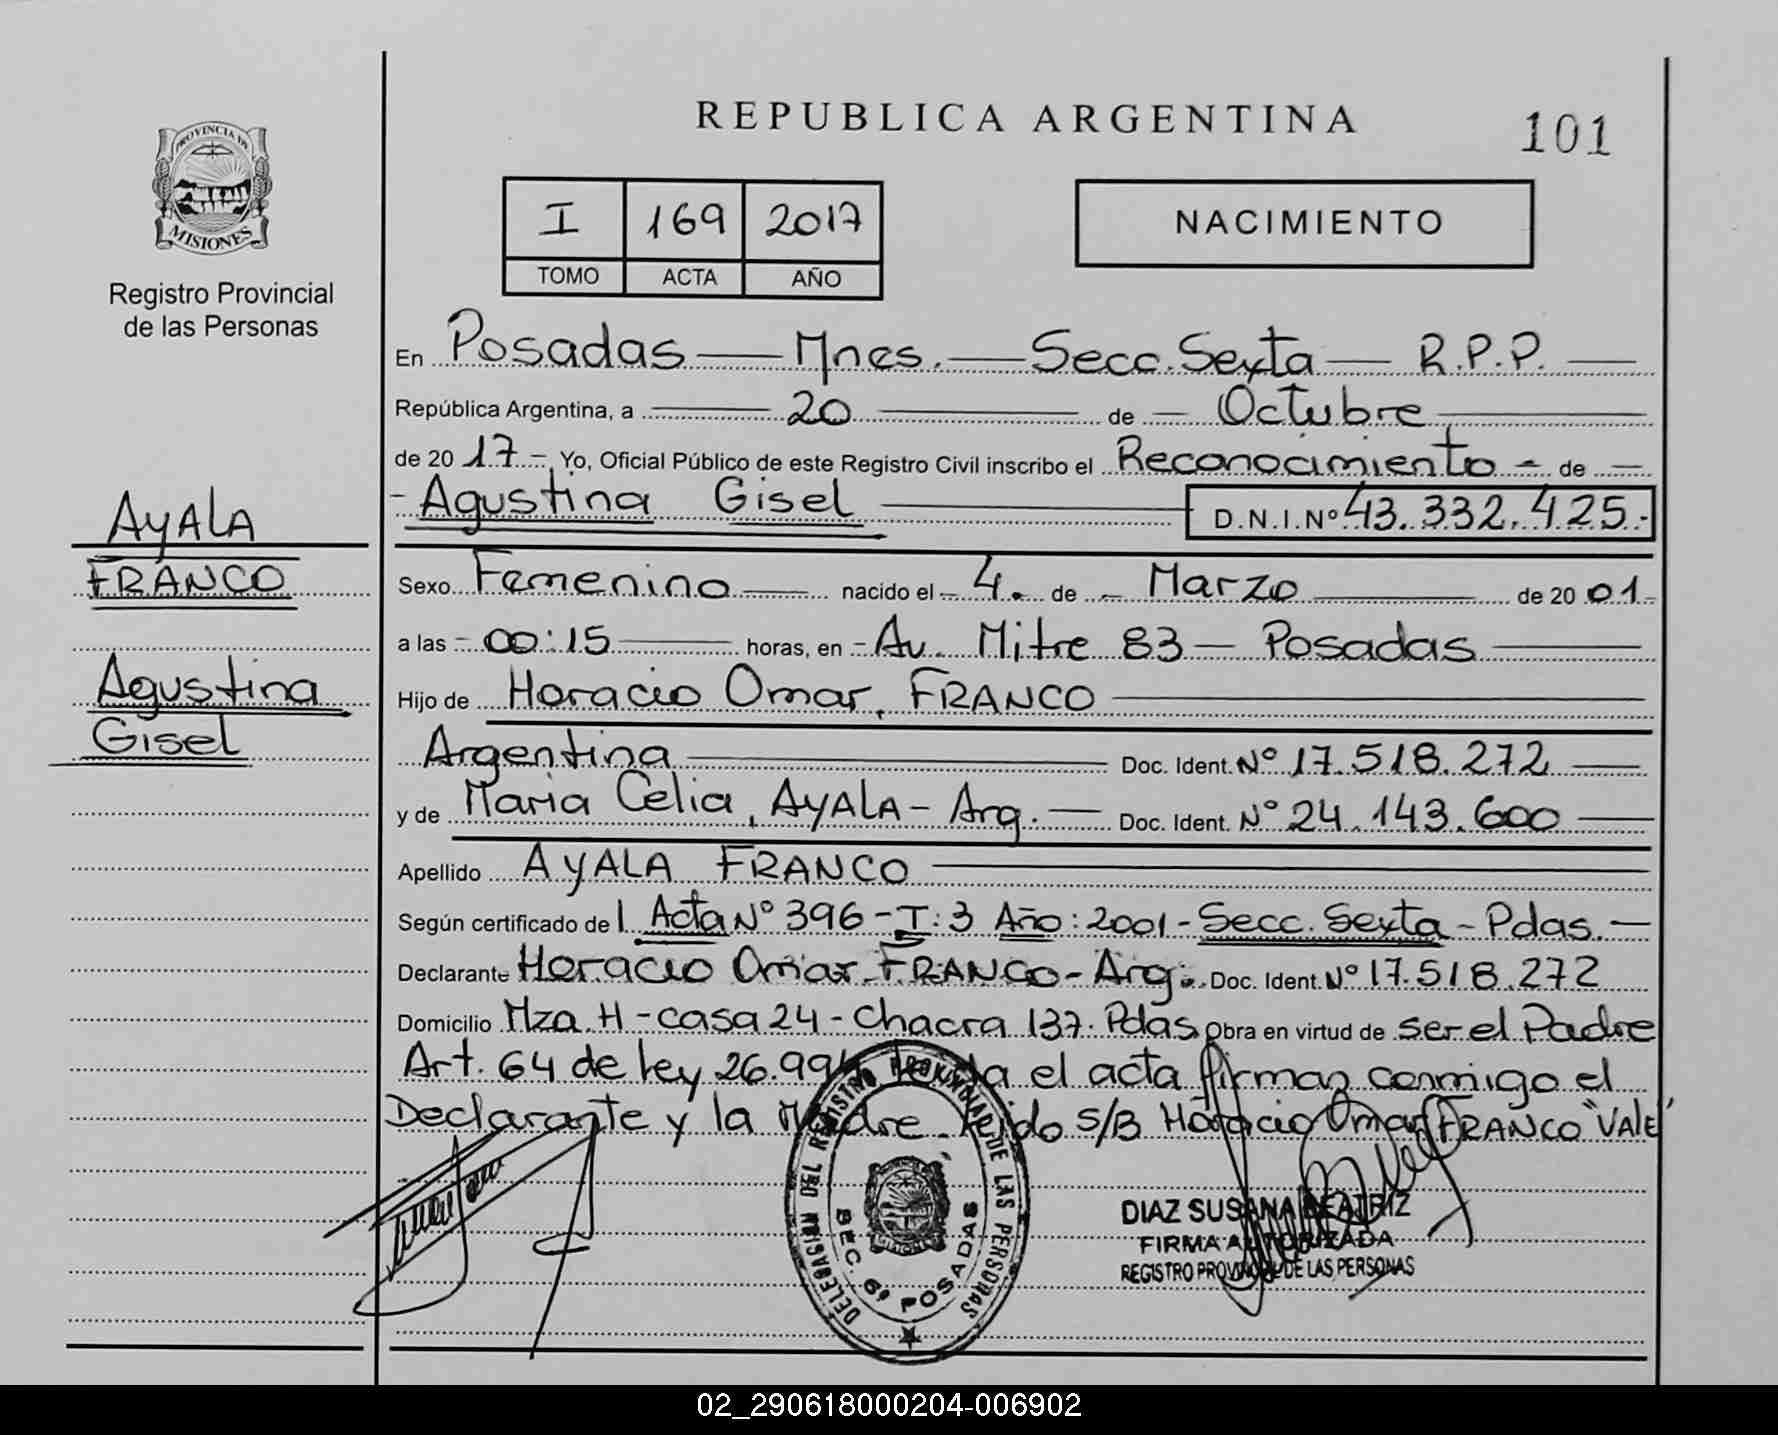 REPUBLICA ARGENTINA
101
PROVINCIA DE
MISIONES
Registro Provincial
de las Personas
I 169 2017
TOMO ACTA AÑO
NACIMIENTO
En Posadas — Mnes. — Secc. Sexta — R.P.P. —
República Argentina, a — 20 — de — Octubre —
de 20 17 - Yo, Oficial Público de este Registro Civil inscribo el Reconocimiento - de -
- Agustina Gisel — D.N.I.Nº 43.332.425.-
AYALA
FRANCO
Agustina
Gisel
Sexo Femenino — nacido el - 4. de - Marzo — de 20 01 -
a las - 00:15 — horas, en - Av. Mitre 83 — Posadas —
Hijo de Horacio Omar, FRANCO —
Argentina — Doc. Ident. Nº 17.518.272 —
y de Maria Celia, AYALA - Arg. — Doc. Ident. Nº 24.143.600 —
Apellido AYALA FRANCO —
Según certificado de Acta Nº 396 - T: 3 Año: 2001 - Secc. Sexta - Pdas. —
Declarante Horacio Omar FRANCO - Arg. Doc. Ident. Nº 17.518.272
Domicilio Mza. H - casa 24 - Chacra 137. Pdas. Obra en virtud de ser el Padre
Art. 64 de ley 26.994 el acta firman conmigo el
Declarante y la Madre. S/B Horacio Omar FRANCO "VALE"
DELEGACION DEL REGISTRO PROVINCIAL DE LAS PERSONAS
SEC. 6ª POSADAS
MISIONES
DIAZ SUSANA BEATRIZ
FIRMA AUTORIZADA
REGISTRO PROVINCIAL DE LAS PERSONAS
02_290618000204-006902